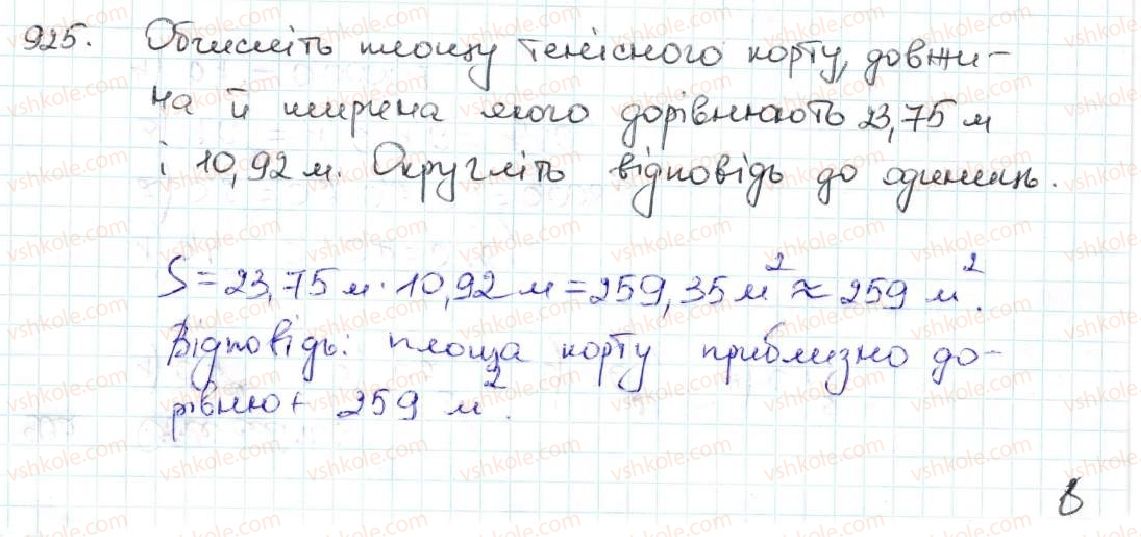 925. Обчисліть площу тенісного корту, довжи-
на й ширина якого дорівнюють 23,75 м
і 10,92 м. Округліть відповідь до одиниць.
S = 23,75 м · 10,92 м = 259,35 м² ≈ 259 м².
Відповідь: площа корту приблизно до-
рівнює 259 м².